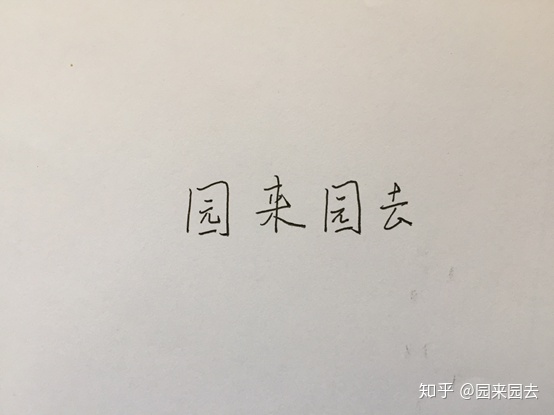 园来园去
知乎 @园来园去